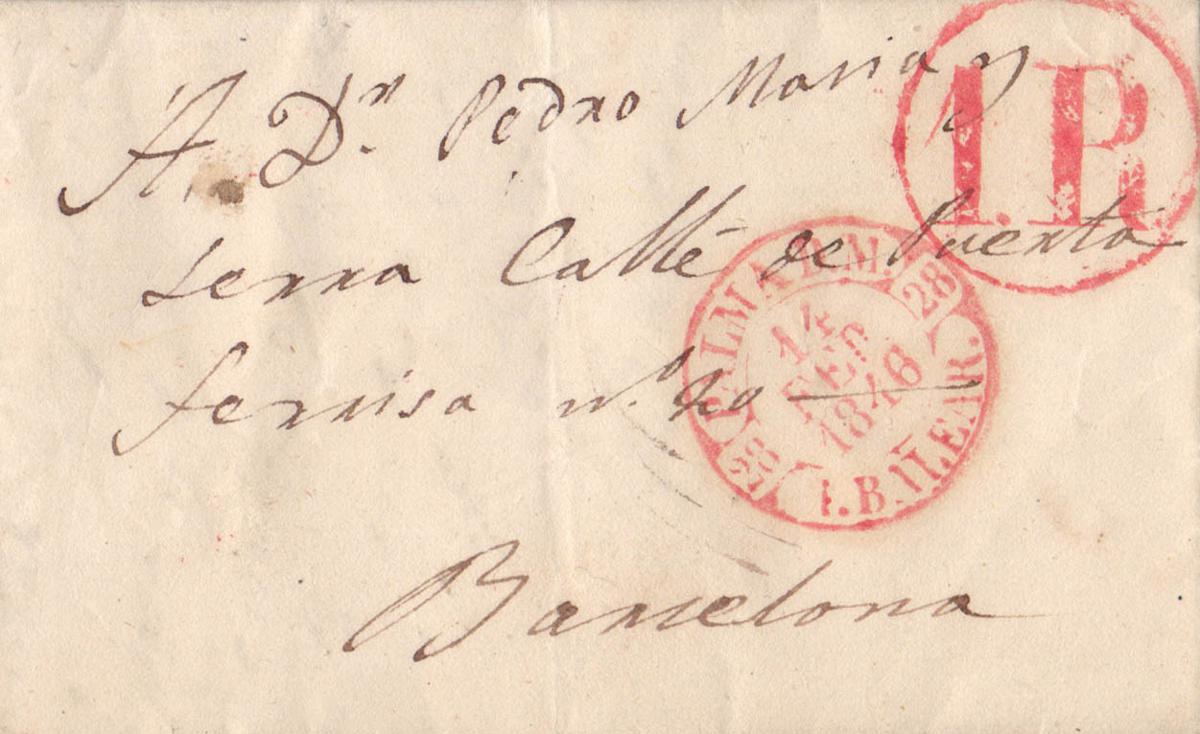 A. Dn. Pedro Maria y
serra Calle de Puerta
ferrisa n.º 20
Barcelona
1.R
PALMA D.M.
28
14
FEB
1846
28
I.BALEAR.